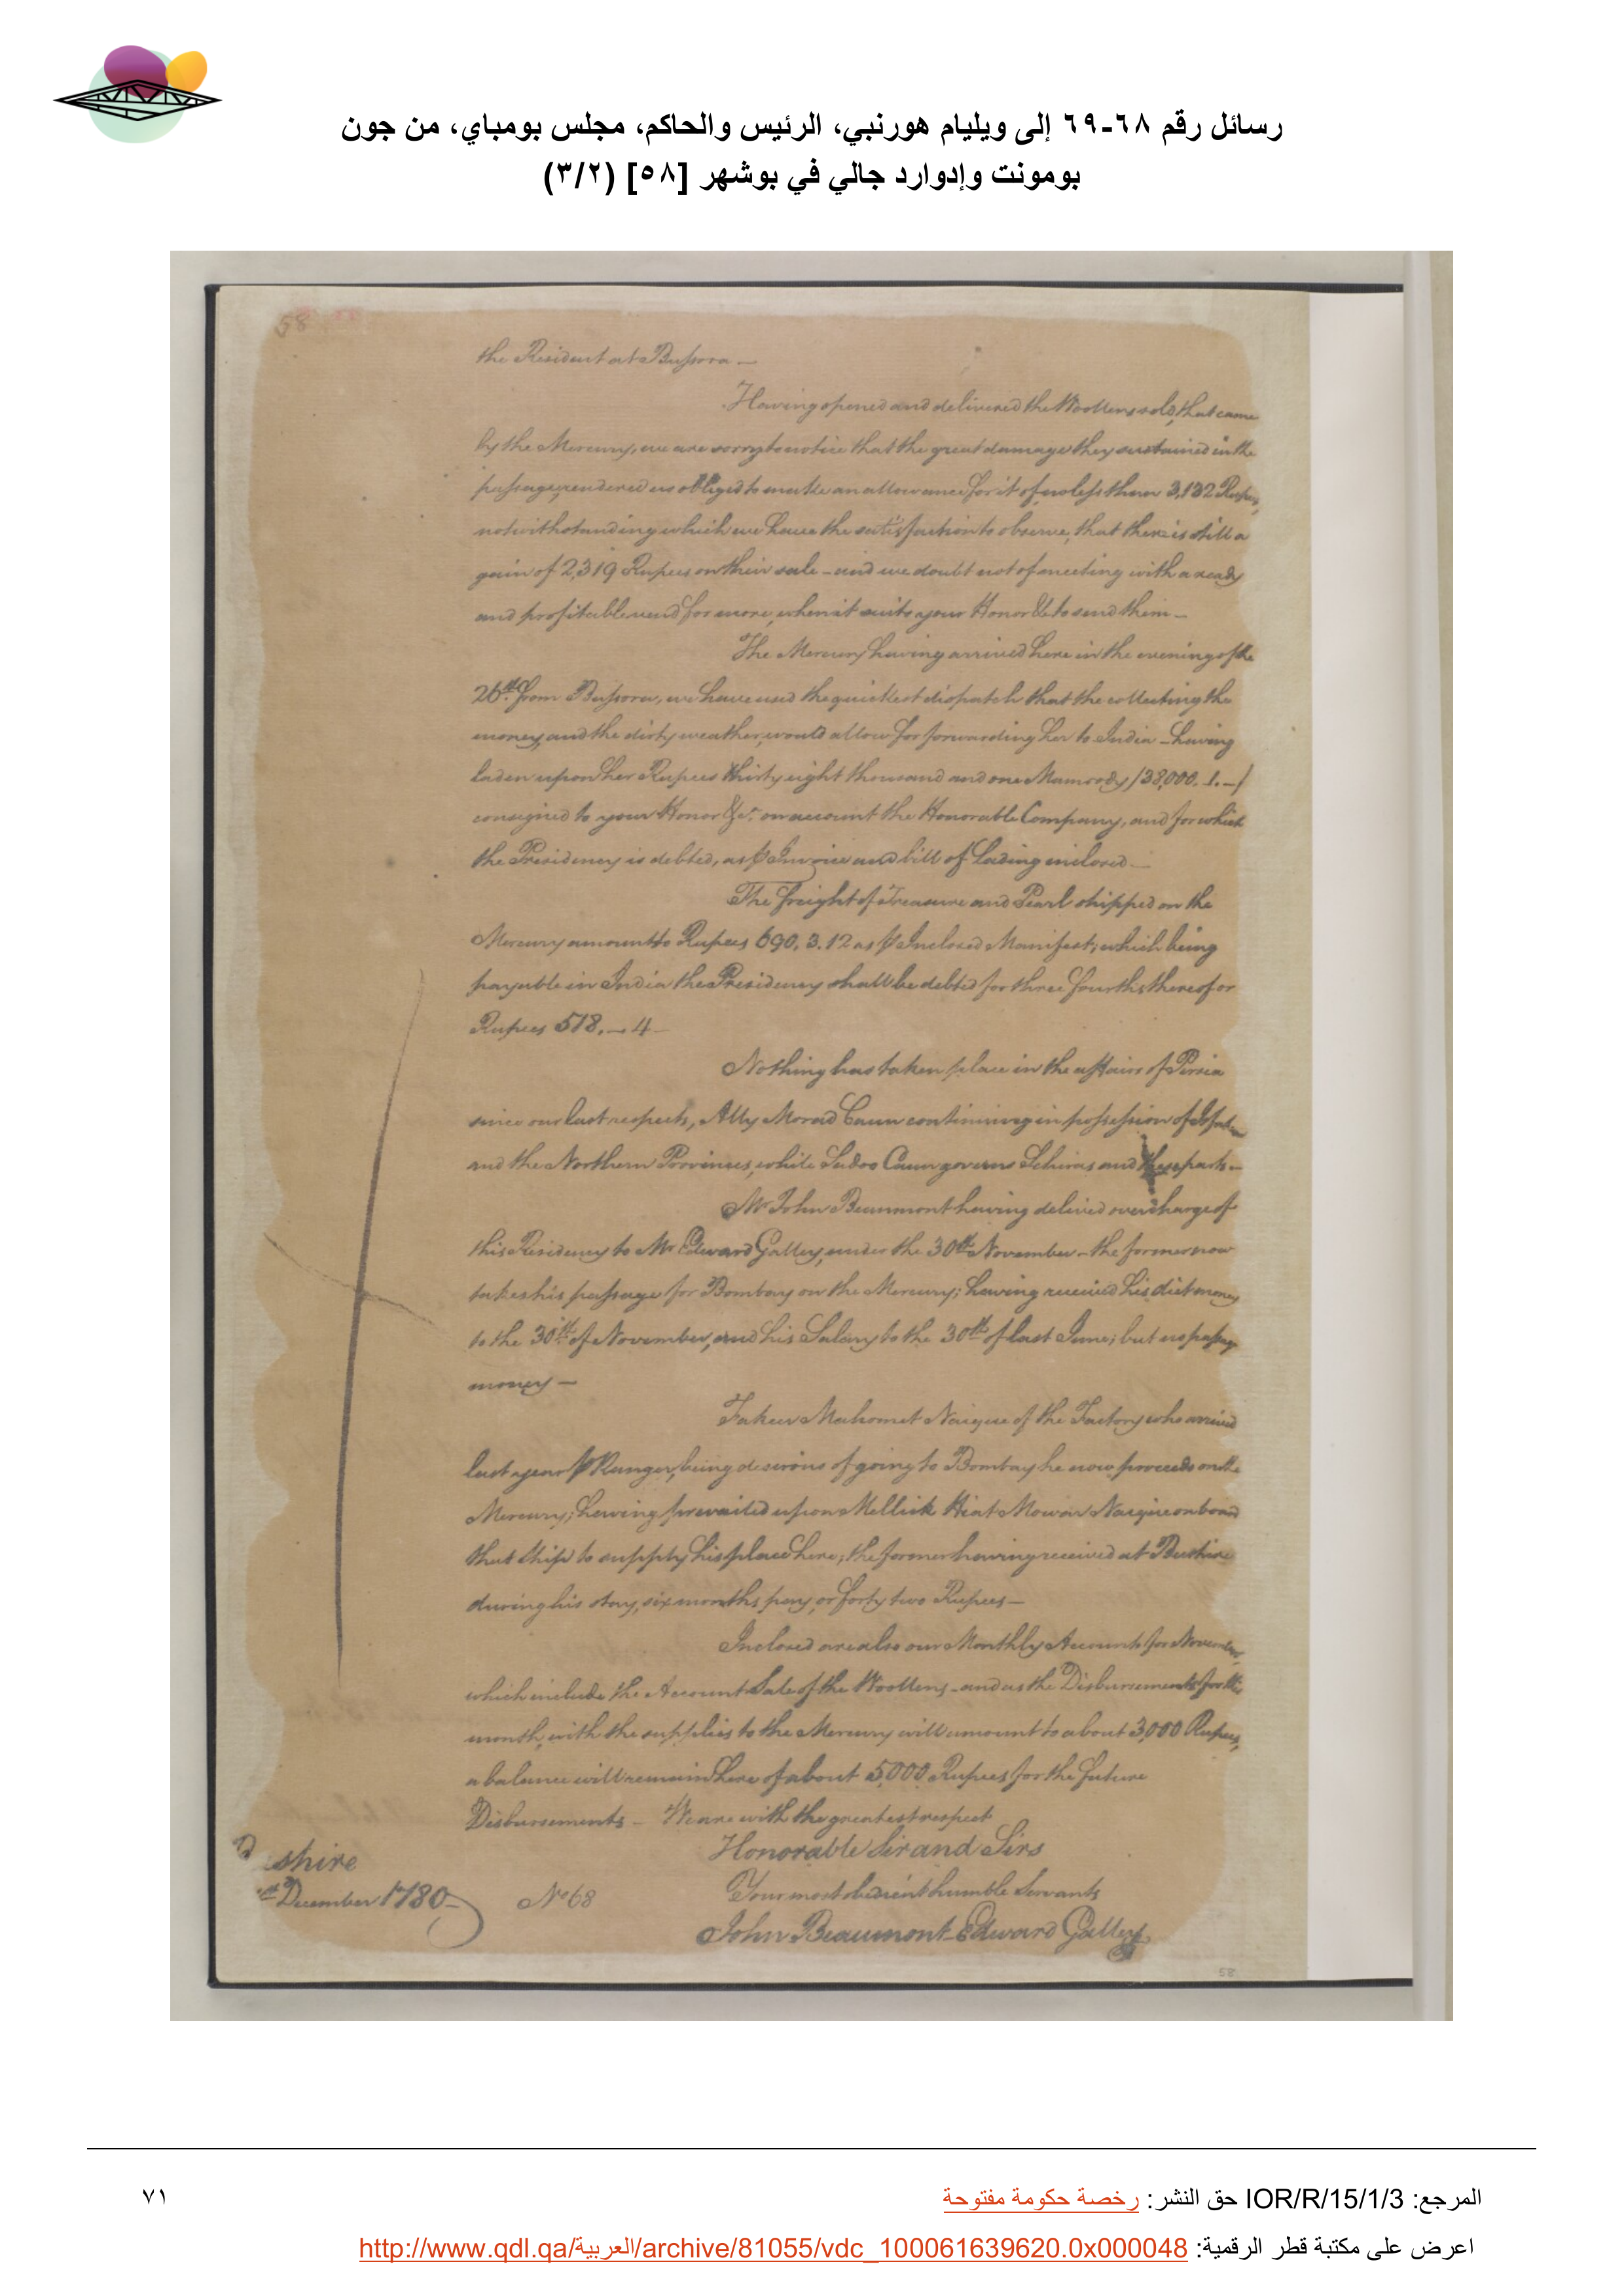 رسائل رقم ٦٨-٦٩ إلى ويليام هورنبي، الرئيس والحاكم، مجلس بومباي، من جون
بومونت وإدوارد جالي في بوشهر [٥٨] (٣/٢)
58
the Resident at Bussora —
Having opened and delivered the Woollens sold, that came
by the Mercury, we are sorry to notice that the great damage they sustained in the
passage, rendered us obliged to make an allowance for it of no less than 3,132 Rupees,
notwithstanding which we have the satisfaction to observe, that there is still a
gain of 2,319 Rupees on their sale – and we doubt not of meeting with a ready
and profitable vend for more, when it suits your Honor &c to send them —
The Mercury having arrived here in the evening of the
26th from Bussora, we have used the quickest dispatch that the collecting the
money, and the dirty weather, would allow for forwarding her to India – having
laden upon her Rupees thirty eight thousand and one Mamoody /38,000. 1. –/
consigned to your Honor &c. on account the Honorable Company, and for which
the Presidency is debted, as p Invoice and bill of Lading inclosed —
The freight of Treasure and Pearl shipped on the
Mercury amounts to Rupees 690. 3. 12 as p Inclosed Manifest; which being
payable in India the Presidency shall be debted for three fourths thereof or
Rupees 518. — 4 —
Nothing has taken place in the affairs of Persia
since our last respects, Ally Morad Caun continuing in possession of
and the Northern Provinces, while Sadoo Caun governs Schiras and these parts —
Mr John Beaumont having delived over charge of
this Residency to Mr Edward Galley, under the 30th November – the former now
takes his passage for Bombay on the Mercury; having received his diet money
to the 30th of November, and his Salary to the 30th of last June; but no passage
money —
Fakeer Mahomet Naique of the Factory who arrived
last year p Ranger, being desirous of going to Bombay he now proceeds on the
Mercury; having prevailed upon Mellick Hiat Mowar Naique on board
that Ship to supply his place here; the former having received at Bushire
during his stay, six months pay, or forty two Rupees —
Inclosed are also our Monthly Accounts for November,
which include the Account Sale of the Woollens – and as the Disbursements for this
month, with the supplies to the Mercury will amount to about 3,000 Rupees,
a balance will remain here of about 5,000 Rupees for the future
Disbursements – We are with the greatest respect
Honorable Sir and Sirs
shire
December 1780 –
No 68
Your most obedient humble Servants
John Beaumont – Edward Galley
58
المرجع: IOR/R/15/1/3 حق النشر: رخصة حكومة مفتوحة
٧١
اعرض على مكتبة قطر الرقمية: http://www.qdl.qa/العربية/archive/81055/vdc_100061639620.0x000048